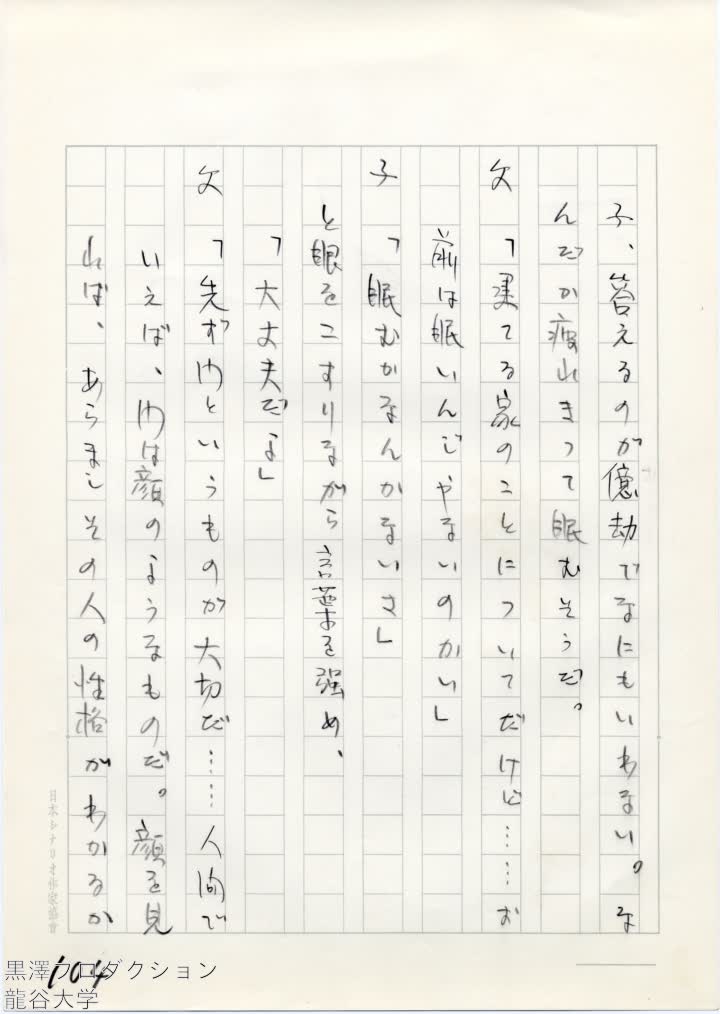 子、答えるのが億劫でなにもいわない。な
んだか疲れきって眠むそうだ。
父「建てる家のことについてだけど……お
前は眠いんじやないのかい」
子「眠むかなんかないさ」
と眼をこすりながら言葉を強め、
「大丈夫だよ」
父「先ず門というものが大切だ……人間で
いえば、門は顔のようなものだ。顔を見
れば、あらましその人の性格がわかるか
日本シナリオ作家協會
104
黒澤プロダクション
龍谷大学